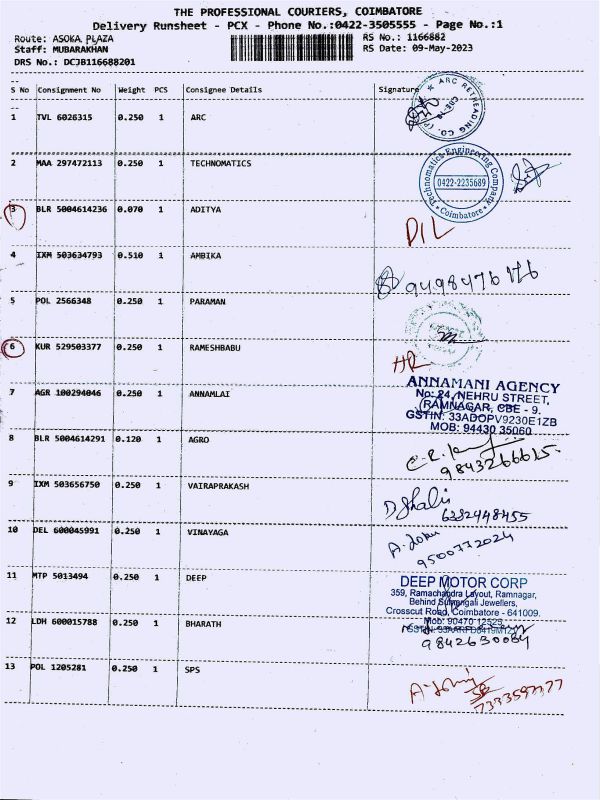 THE PROFESSIONAL COURIERS, COIMBATORE
Delivery Runsheet - PCX - Phone No.:0422-3505555 - Page No.:1
Route: ASOKA PLAZA RS No.: 1166882
Staff: MUBARAKHAN RS Date: 09-May-2023
DRS No.: DCJB116688201
S No Consignment No Weight PCS Consignee Details Signature
1 TVL 6026315 0.250 1 ARC
ARC RETREADING CO. (P)
CBE-18
2 MAA 297472113 0.250 1 TECHNOMATICS
Technomatics Engineering Company
0422-2235689
* Coimbatore *
3 BLR 5004614236 0.070 1 ADITYA
DIL
4 IXM 503634793 0.510 1 AMBIKA
9498476176
5 POL 2566348 0.250 1 PARAMAN
6 KUR 529503377 0.250 1 RAMESHBABU
HR
7 AGR 100294046 0.250 1 ANNAMLAI
ANNAMANI AGENCY
No: 24, NEHRU STREET,
RAMNAGAR, CBE - 9.
GSTIN: 33ADOPV9230E1ZB
MOB: 94430 35060
8 BLR 5004614291 0.120 1 AGRO
9843266615
9 IXM 503656750 0.250 1 VAIRAPRAKASH
6382448455
10 DEL 600045991 0.250 1 VINAYAGA
9500772024
11 MTP 5013494 0.250 1 DEEP
DEEP MOTOR CORP
359, Ramachandra Layout, Ramnagar,
Behind Sumangali Jewellers,
Crosscut Road, Coimbatore - 641009.
Mob: 90470 12525
12 LDH 600015788 0.250 1 BHARATH
9842630064
13 POL 1205281 0.250 1 SPS